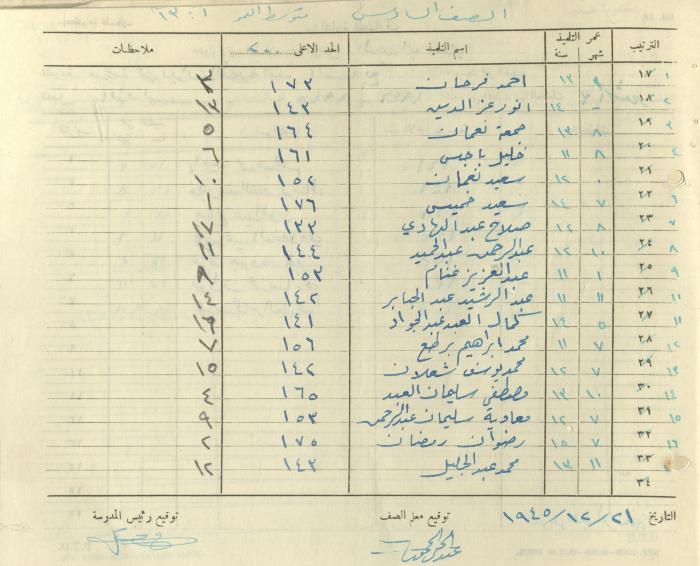 الصف السادس متوسط العمر ١٣:١
الترتيب عمر التلميذ شهر سنة اسم التلميذ الحد الاعلى ٢٠٠ ملاحظات
١ ١٧ ٩ ١٣ احمد فرحان ١٧٣ ٣
٢ ١٨ - ١٤ انور عز الدين ١٤٣ ١٣
٣ ١٩ ٨ ١٣ جمعة نعمان ١٦٤ ٥
٢٠ ٨ ١١ خليل ١٦١ ٦
٢١ ٠ ١٢ سعيد نعمان ١٥٢ ١٠
٦ ٢٢ ٧ ١٤ سعيد خميس ١٧٦ ١
٧ ٢٣ ٨ ١٢ صلاح عبد الهادي ١٣٣ ١٧
٨ ٢٤ ١٠ ١٢ عبد الرحمن عبد الحميد ١٤٤ ١١
٩ ٢٥ ١ ١١ عبد العزيز غنام ١٥٣
١٠ ٢٦ ١١ ١١ عبد الرشيد عبد الجابر ١٤٢ ١٤
١١ ٢٧ ٥ ١٤ كمال العبد عبد الجواد ١٤١
١٢ ٢٨ ٧ ١١ محمد ابراهيم ١٥٦ ٧
١٣ ٢٩ ٧ ١٢ محمد يوسف شعلان ١٤٢ ١٥
١٤ ٣٠ ١٠ ١٣ مصطفى سليمان العبد ١٦٥ ٤
١٥ ٣١ ٧ ١٢ معاوية سليمان عبد الرحمن ١٥٣ ٩
١٦ ٣٢ ٧ ١٥ رضوان رمضان ١٧٥ ٢
٣٣ ١١ ١٣ محمد عبد الجليل ١٤٣ ١٢
٣٤
التاريخ ٢١/١٢/١٩٤٥ توقيع معلم الصف توقيع رئيس المدرسة